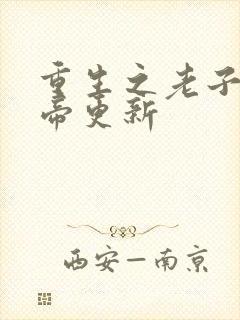 重生之老子
帝更新
西安—南京